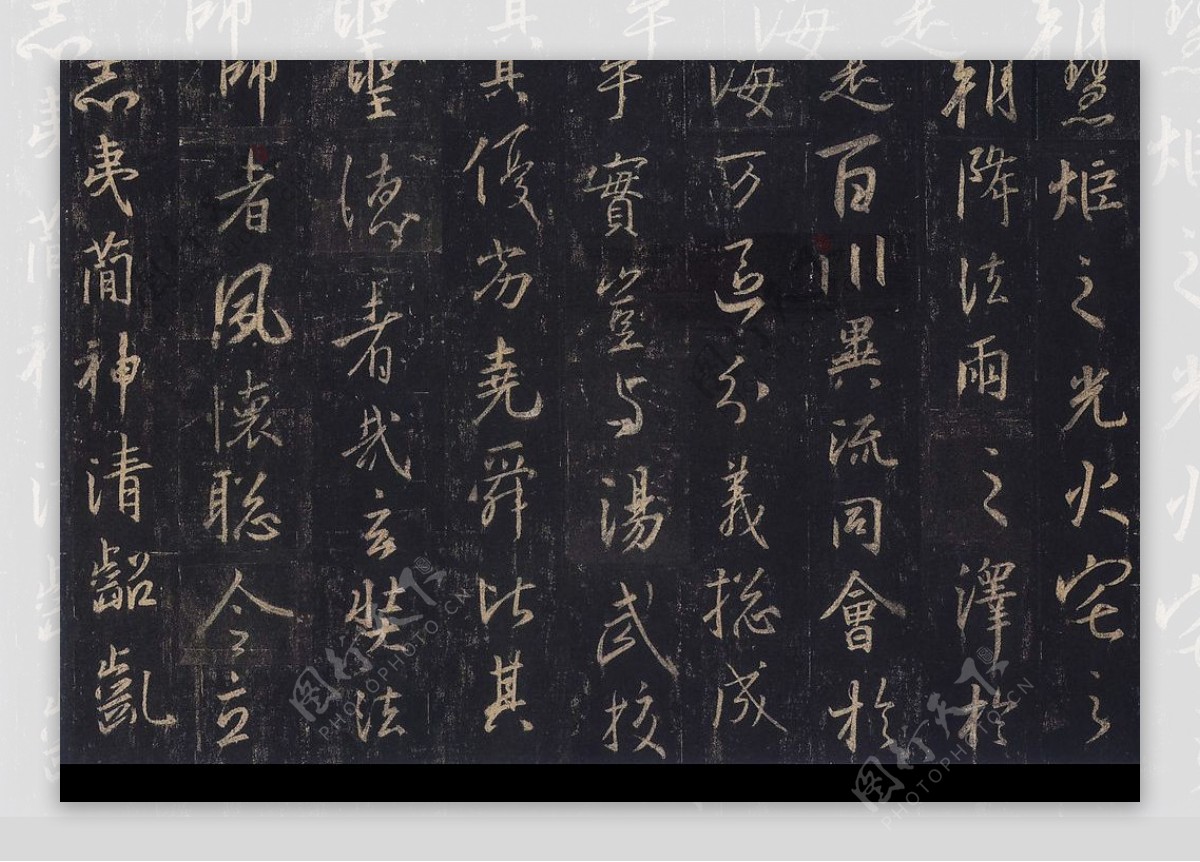 慧炬之光火宅之
朝降法雨之澤於
是百川異流同會於
海万區分義揔成
乎實豈与湯武挍
其優劣堯舜比其
聖德者哉玄奘法
師者夙懷聡令立
志夷簡神清齠齓
图行天下 PHOTOPHOTO.CN